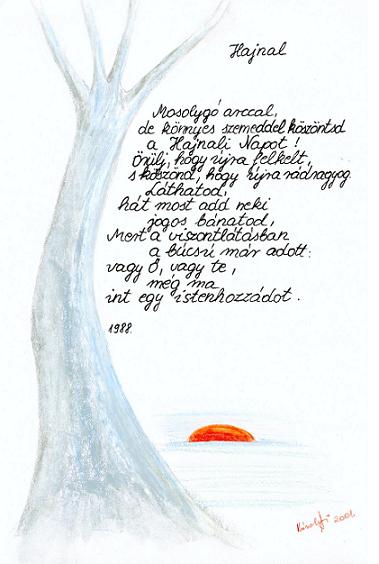 Hajnal
Mosolygó arccal,
de könnyes szemeddel köszöntsd
a Hajnali Napot!
Örülj, hogy újra felkelt,
s köszönd, hogy újra rád ragyog.
Láthatod,
hát most add neki
jogos bánatod,
Mert a viszontlátásban
a búcsú már adott:
vagy Ő, vagy te,
még ma
int egy istenhozzádot.
1988.
2001